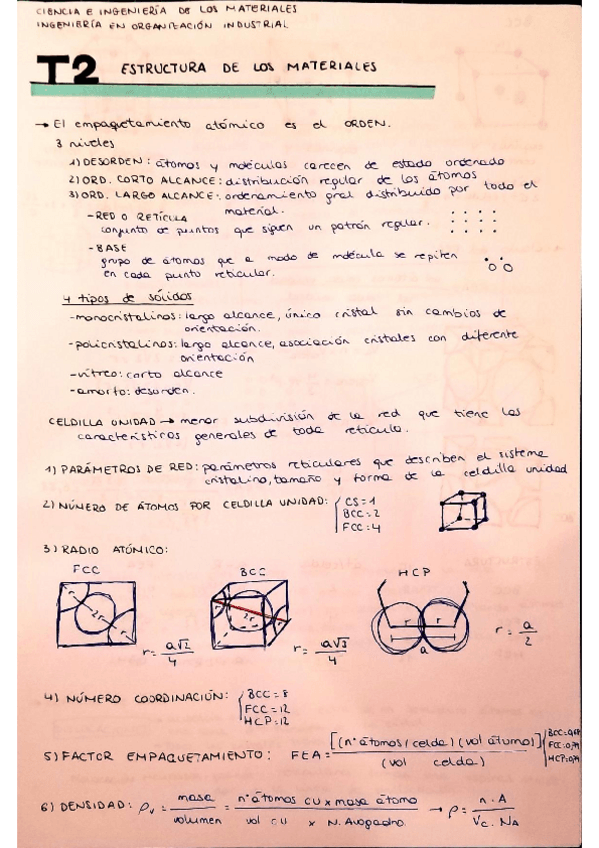 CIENCIA E INGENIERÍA DE LOS MATERIALES
INGENIERÍA EN ORGANIZACIÓN INDUSTRIAL
T2 ESTRUCTURA DE LOS MATERIALES
→ El empaquetamiento atómico es el ORDEN.
3 niveles
1) DESORDEN: átomos y moléculas carecen de estado ordenado
2) ORD. CORTO ALCANCE: distribución regular de los átomos
3) ORD. LARGO ALCANCE: ordenamiento gral distribuido por todo el
material.
- RED O RETÍCULA
conjunto de puntos que siguen un patrón regular.
- BASE
grupo de átomos que a modo de molécula se repiten
en cada punto reticular.
4 tipos de sólidos
- monocristalinos: largo alcance, único cristal sin cambios de
orientación.
- policristalinos: largo alcance, asociación cristales con diferente
orientación
- vítreo: corto alcance
- amorfo: desorden.
CELDILLA UNIDAD → menor subdivisión de la red que tiene las
características generales de toda retículo.
1) PARÁMETROS DE RED: parámetros reticulares que describen el sistema
cristalino, tamaño y forma de la celdilla unidad
2) NÚMERO DE ÁTOMOS POR CELDILLA UNIDAD: { CS = 1
BCC = 2
FCC = 4
3) RADIO ATÓMICO:
FCC BCC HCP
r 2r r
r 2r r
r r
a
r = a√2 / 4
r = a√3 / 4
r = a / 2
4) NÚMERO COORDINACIÓN: { BCC = 8
FCC = 12
HCP = 12
5) FACTOR EMPAQUETAMIENTO: FEA = [(nº átomos/celda)(vol átomo)] / (vol celda) { BCC = 0,68
FCC: 0,74
HCP: 0,74
6) DENSIDAD: ρv = masa / volumen = nº átomos CU x masa átomo / vol CU x N. Avogadro. → ρ = n · A / Vc · NA